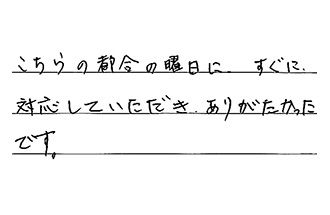 こちらの都合の曜日に、すぐに、
対応していただき、ありがたかった
です。